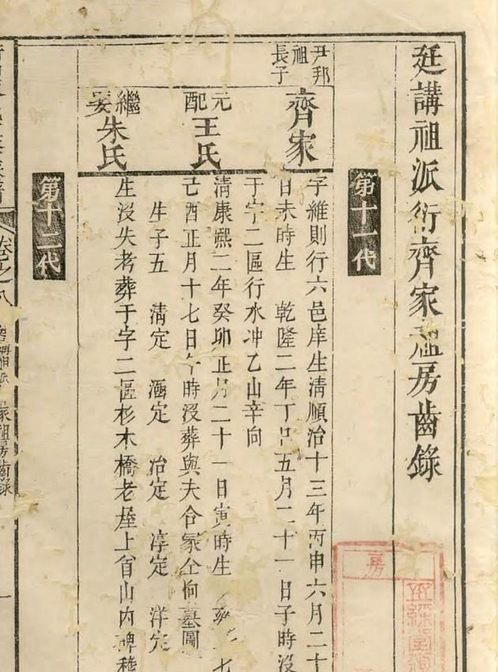 廷講祖派衍齊家公房齒錄
第十一代
尹邦
祖
長子
齊家
字維則行六邑庠生清順治十三年丙申六月二十
日未時生 乾隆二年丁巳五月二十一日子時没
于字二區行水冲乙山辛向
元配王氏
清康熙二年癸卯正月二十一日寅時生
己酉正月十七日午時没葬與夫合冢仝向墓圖
生子五 清定 涵定 治定 淳定 洋定
繼妾朱氏
生没失考葬于字二區杉木橋老屋上首山内碑
第十二代
卷之八
房齒錄